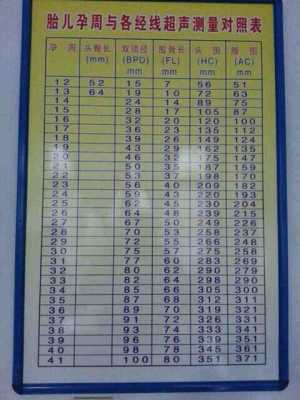 胎儿孕周与各经线超声测量对照表
孕 周 头臀长 双顶径 股骨长 头 围 腹 围
(mm) (BPD) (FL) (HC) (AC)
mm mm mm mm
12 52 15 7 56 51
13 64 19 10 72 63
14 24 14 89 75
15 28 17 105 87
16 32 20 120 100
17 36 23 135 112
18 39 26 149 124
19 43 29 162 135
20 46 32 175 147
21 50 35 187 159
22 53 37 198 170
23 56 40 209 182
24 59 43 220 193
25 62 45 230 204
26 64 48 239 215
27 67 50 249 226
28 70 53 258 237
29 72 55 266 248
30 75 57 275 258
31 77 60 283 269
32 80 62 290 279
33 82 64 298 290
34 85 66 305 300
35 87 68 312 311
36 89 70 319 321
37 91 72 326 331
38 93 74 333 341
39 96 76 339 351
40 98 78 345 361
41 100 80 351 371